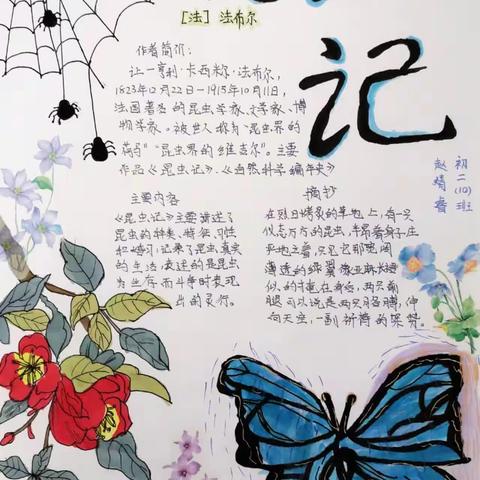 [法] 法布尔
记
作者简介:
让-亨利·卡西米尔·法布尔,
1823年12月22日-1915年10月11日,
法国著名的昆虫学家、文学家、博
物学家。被世人称为"昆虫界的
荷马" "昆虫界的维吉尔"。主要
作品《昆虫记》、《自然科学编年史》
初二(10)班
赵婧睿
主要内容
《昆虫记》主要讲述了
昆虫的种类、特征、习性
和婚习;记录了昆虫真实
的生活,表述的是昆虫
为生存而斗争时表现
出的灵性。
摘抄
在烈日烤炙的草地上,有一只
仪态万方的昆虫,半昂着身子庄
严地立着,只见它那宽阔
薄透的绿翼像亚麻长裙
似的,掩在身后,两只前
腿,可以说是两只胳膊,伸
向天空,一副祈祷的架势。